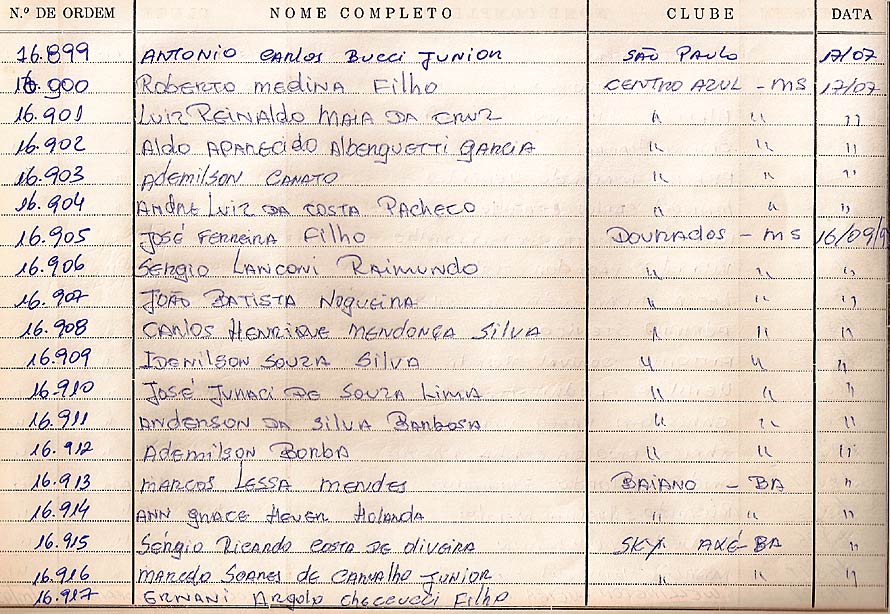 N.º DE ORDEM NOME COMPLETO CLUBE DATA
16.899 ANTONIO CARLOS BUCCI JUNIOR SÃO PAULO 17/07
16.900 ROBERTO MEDINA FILHO CENTRO AZUL - MS 17/07
16.901 LUIZ REINALDO MAIA DA CRUZ " " "
16.902 ALDO APARECIDO ALBENGUETTI GARCIA " " "
16.903 ADEMILSON CANATO " " "
16.904 ANDRE LUIZ DA COSTA PACHECO " " "
16.905 JOSÉ FERREIRA FILHO DOURADOS - MS 16/09/9
16.906 SERGIO LANCONI RAIMUNDO " " "
16.907 JOÃO BATISTA NOGUEIRA " " "
16.908 CARLOS HENRIQUE MENDONÇA SILVA " " "
16.909 IDENILSON SOUZA SILVA " " "
16.910 JOSÉ JUNACI DE SOUZA LIMA " " "
16.911 ANDERSON DA SILVA BARBOSA " " "
16.912 ADEMILSON BORBA " " "
16.913 MARCOS LESSA MENDES BAIANO - BA "
16.914 ANN GRACE HEVEN HOLANDA " " "
16.915 SÉRGIO RICARDO COSTA DE OLIVEIRA SKY AXÉ-BA "
16.916 MARCELO SOARES DE CARVALHO JUNIOR " " "
16.917 ERNANI ARGOLO CHECCUCCI FILHO